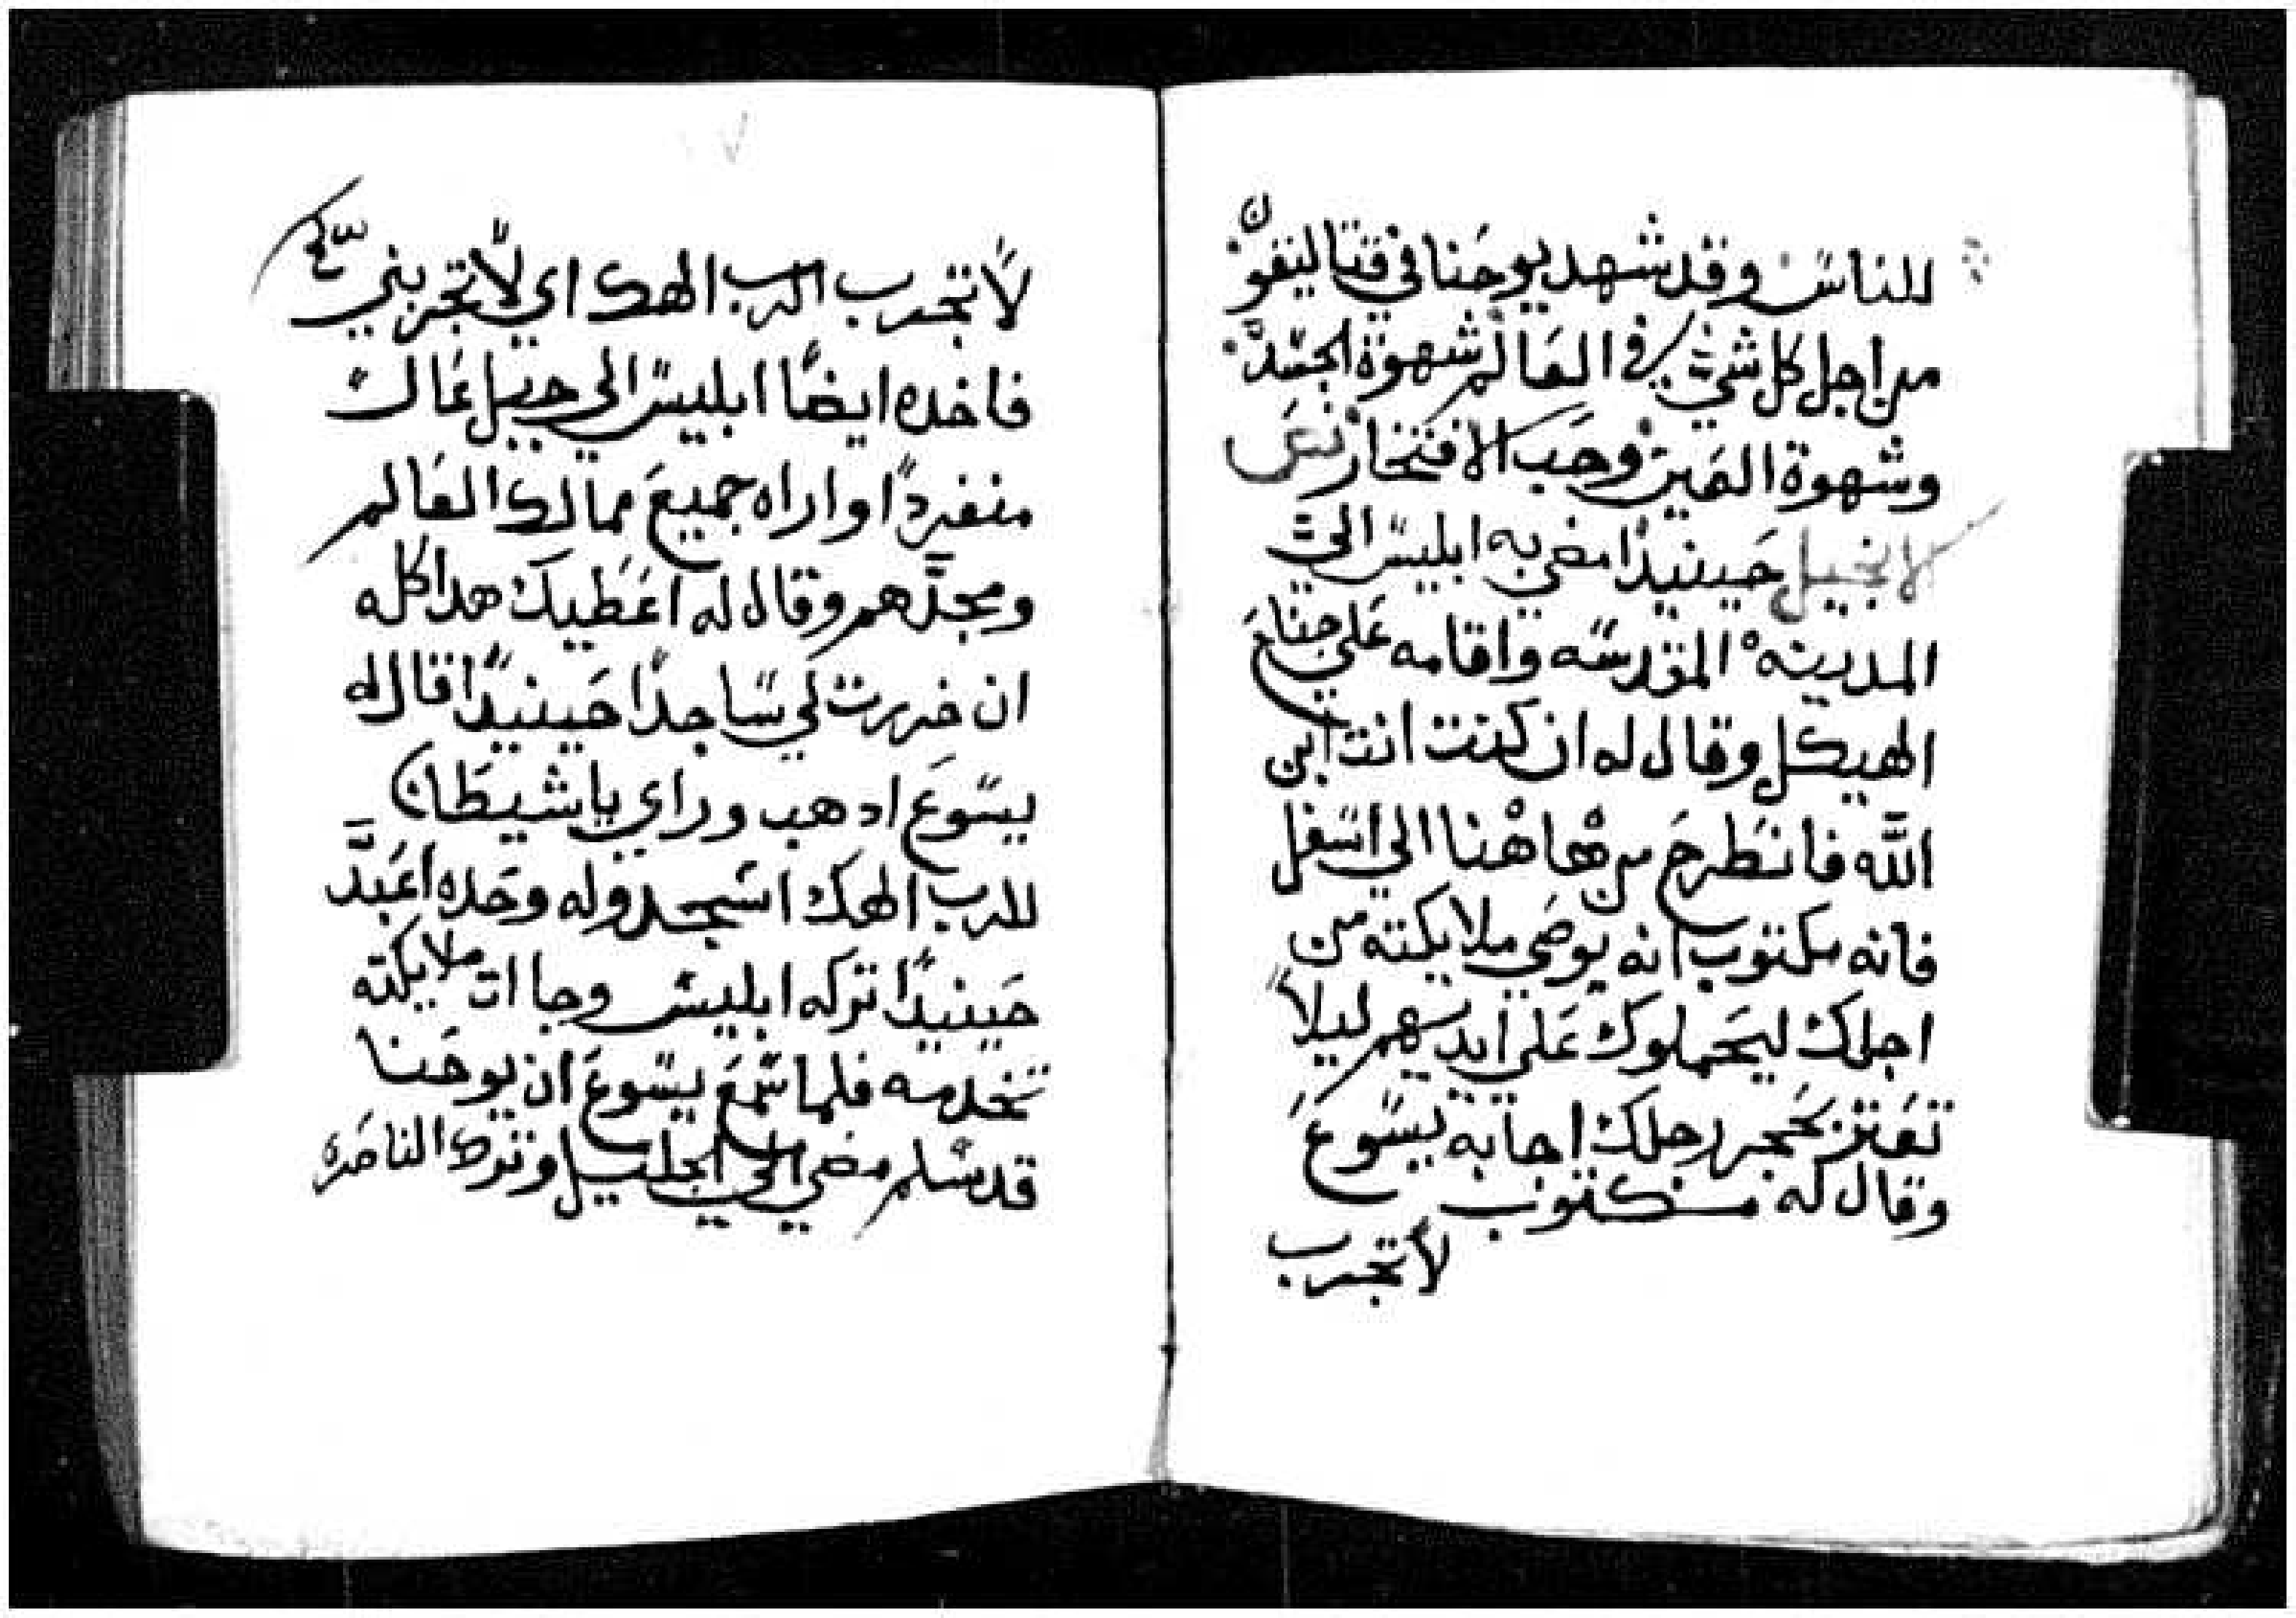 للناس وقد شهد يوحنا في قتاليقون
من اجل كل شي في العالم شهوة الجسد
وشهوة العين وحب الافتخار نص
الانجيل حينيدا مضي به ابليس الي
المدينه المقدسه واقامه علي جناح
الهيكل وقال له ان كنت انت ابن
الله فانطرح من هاهنا الي اسفل
فانه مكتوب انه يوصي ملايكته من
اجلك ليحملوك علي ايديهم ليلا
تعتر بحجر رجلك اجابه يسوع
وقال له مكتوب
لا تجرب
لا تجرب الرب الهك اي لا تجربني
فاخده ايضا ابليس الي جبل عال
منفردا واراه جميع ممالك العالم
ومجدهم وقال له اعطيك هدا كله
ان خررت لي ساجدا حينيدا قال له
يسوع ادهب وراي يا شيطان
للرب الهك اسجد وله وحده اعبد
حينيدا تركه ابليس وجاات ملايكته
تخدمه فلما سمع يسوع ان يوحنا
قد سلم مضي الي الجليل وترك الناصره